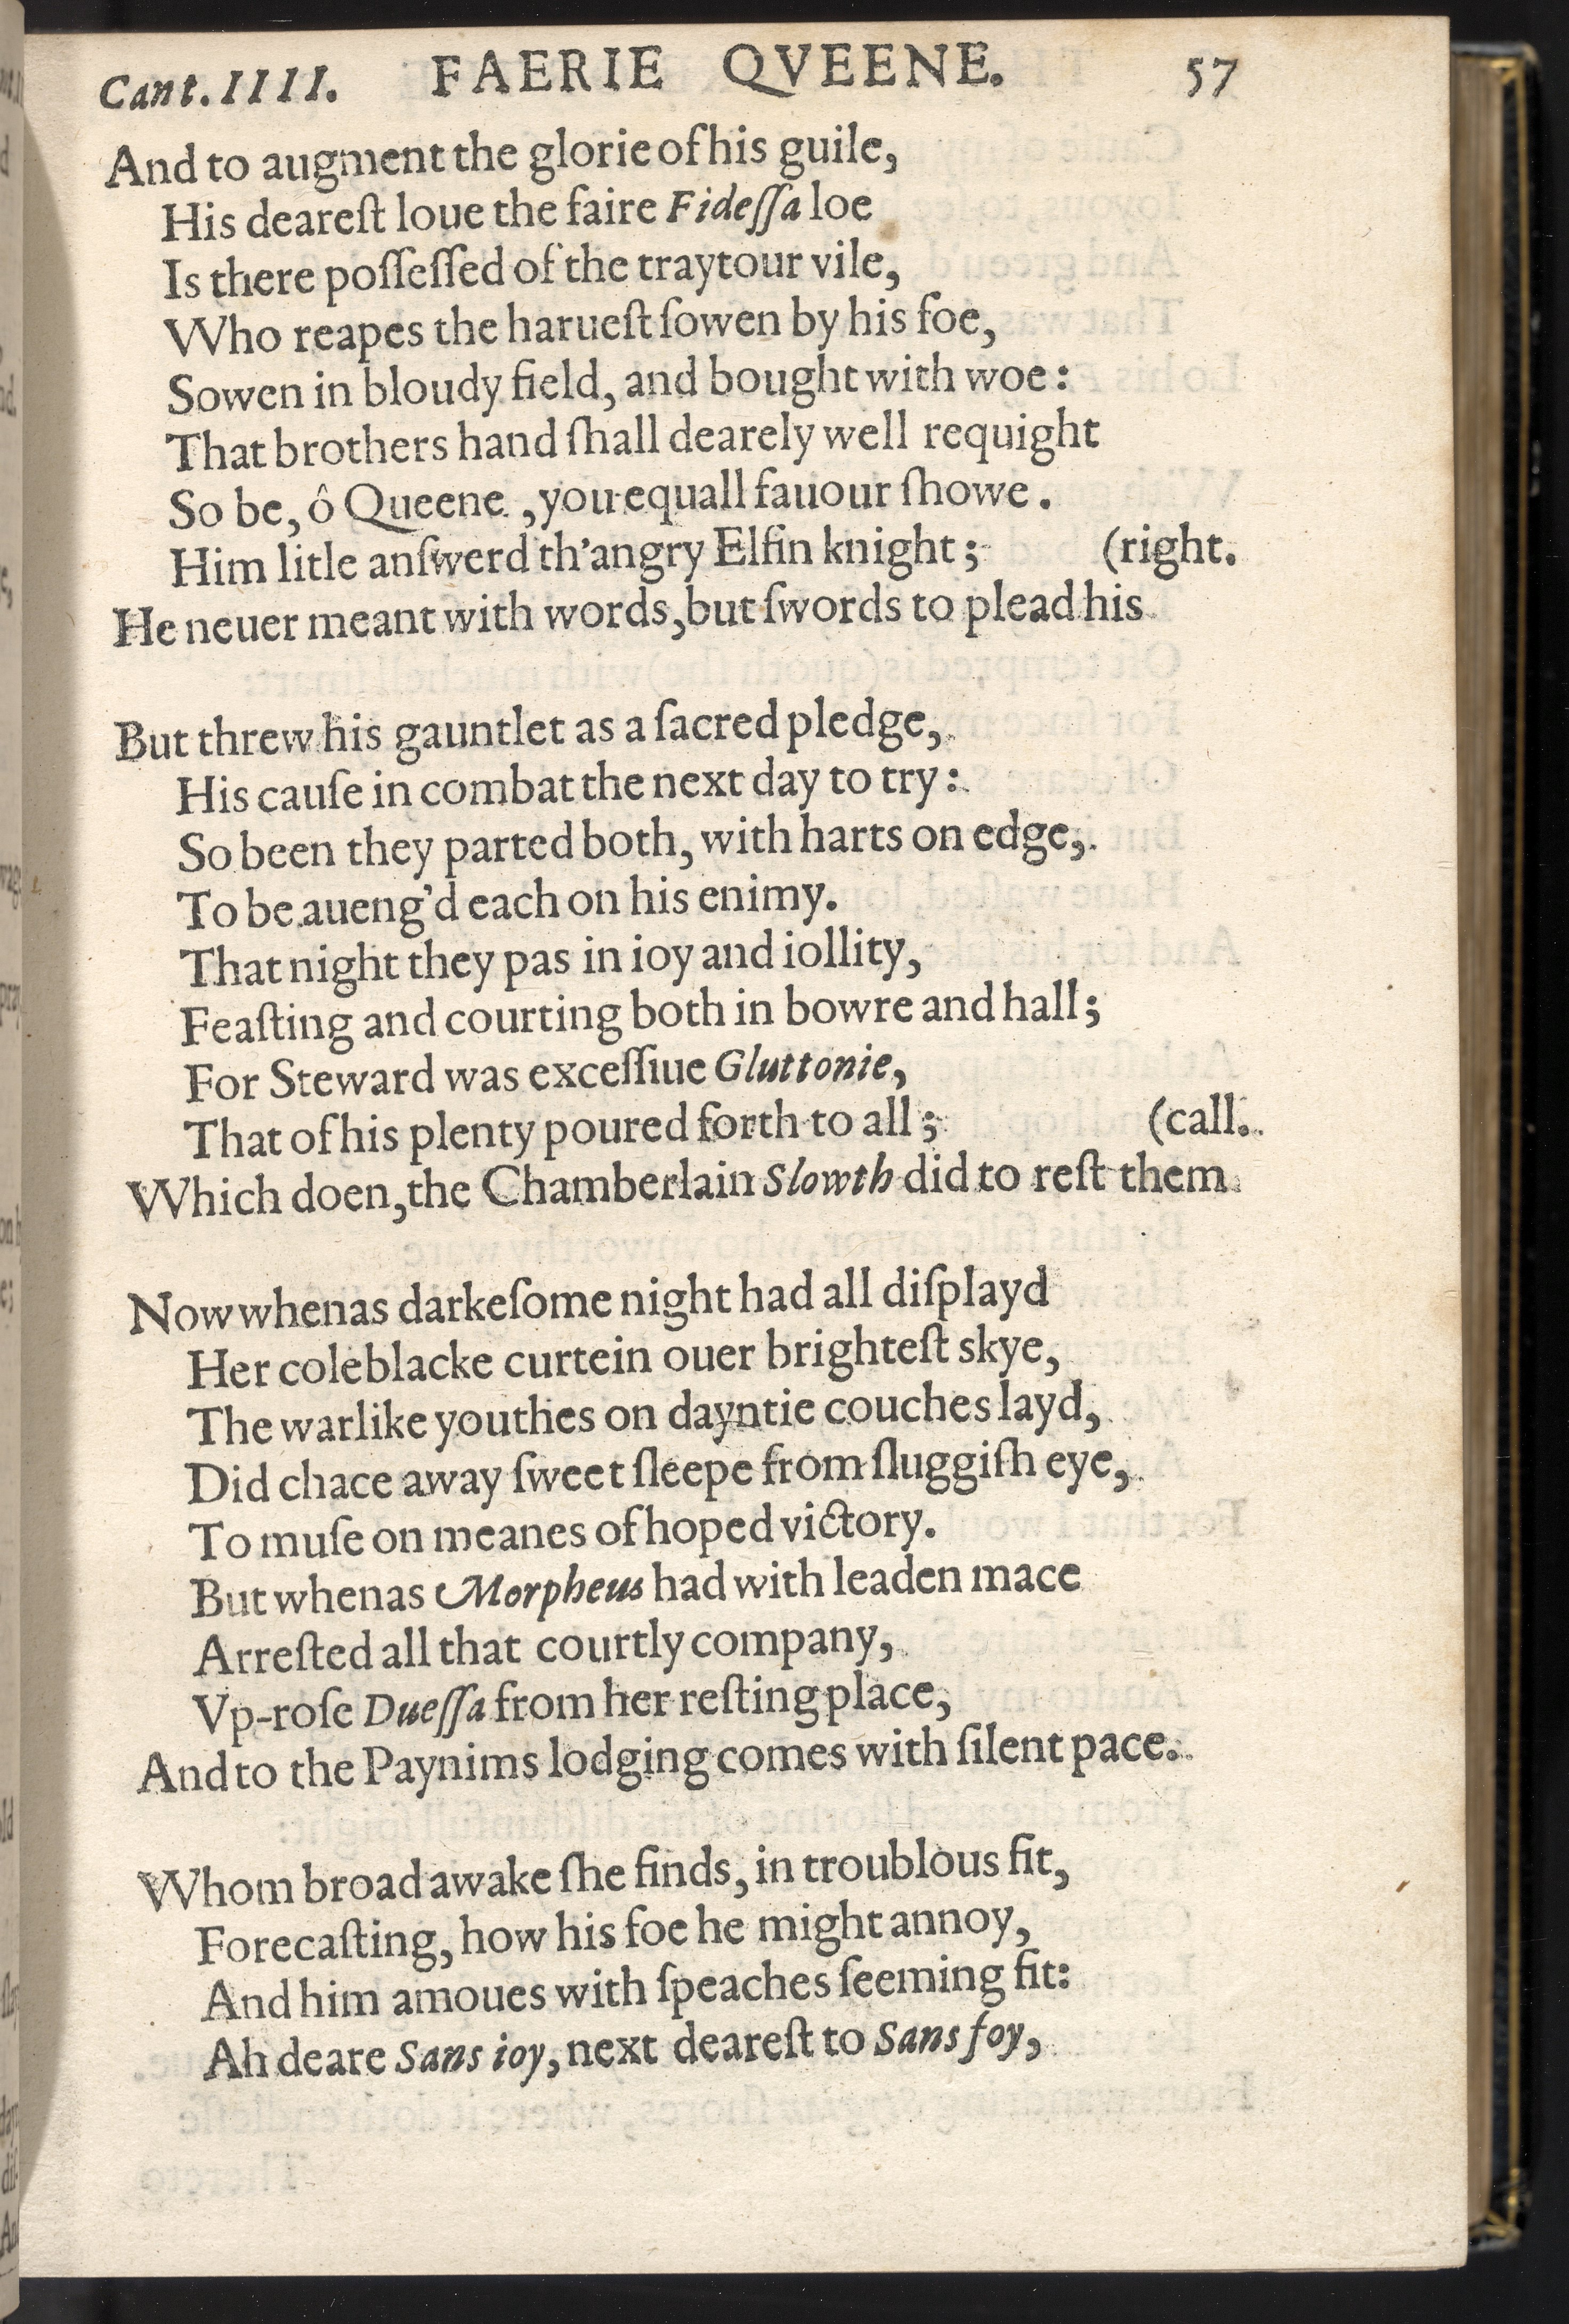 Cant. IIII. FAERIE QVEENE. 57
And to augment the glorie of his guile,
His deareſt loue the faire Fideſſa loe
Is there poſſeſſed of the traytour vile,
Who reapes the harueſt ſowen by his foe,
Sowen in bloudy field, and bought with woe:
That brothers hand ſhall dearely well requight
So be, ô Queene, you equall fauour ſhowe.
Him litle anſwerd th'angry Elfin knight; (right.
He neuer meant with words, but ſwords to plead his
But threw his gauntlet as a ſacred pledge,
His cauſe in combat the next day to try:
So been they parted both, with harts on edge,
To be aueng'd each on his enimy.
That night they pas in ioy and iollity,
Feaſting and courting both in bowre and hall;
For Steward was exceſſiue Gluttonie,
That of his plenty poured forth to all; (call.
Which doen, the Chamberlain Slowth did to reſt them
Now whenas darkeſome night had all diſplayd
Her coleblacke curtein ouer brighteſt skye,
The warlike youthes on dayntie couches layd,
Did chace away ſweet ſleepe from ſluggiſh eye,
To muſe on meanes of hoped victory.
But whenas Morpheus had with leaden mace
Arreſted all that courtly company,
Vp-roſe Dueſſa from her reſting place,
And to the Paynims lodging comes with ſilent pace.
Whom broad awake ſhe finds, in troublous fit,
Forecaſting, how his foe he might annoy,
And him amoues with ſpeaches ſeeming fit:
Ah deare Sans ioy, next deareſt to Sans foy,